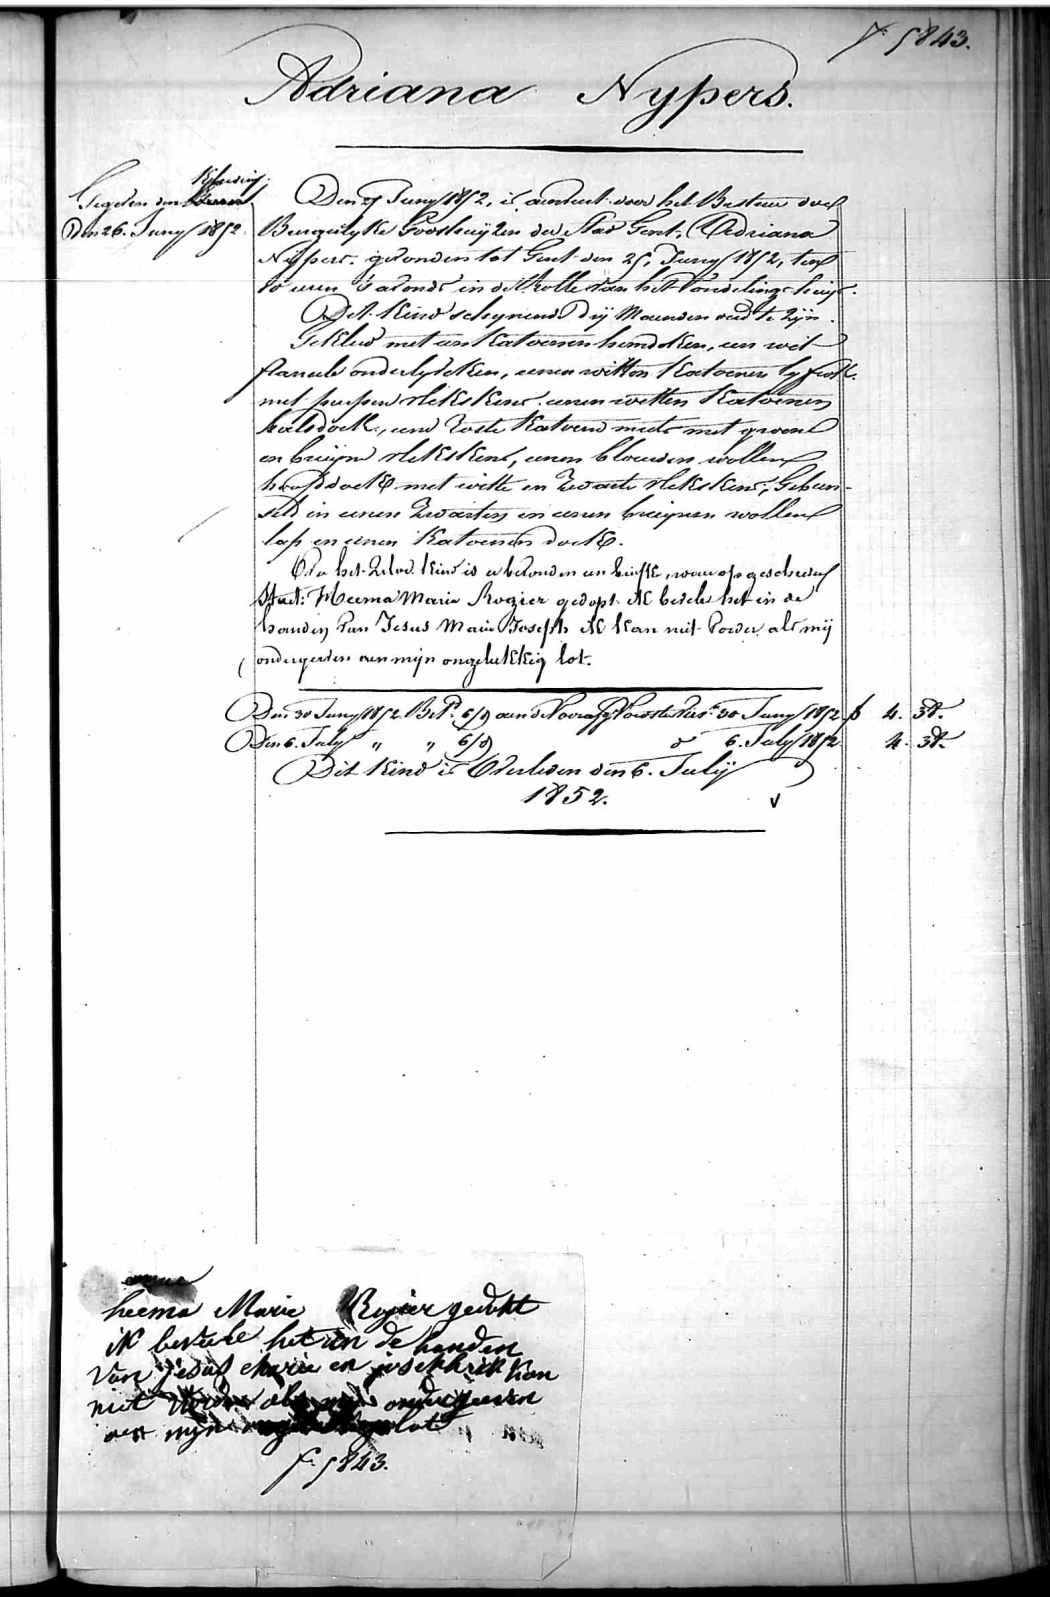 f° 5843.
Adriana Nypers.
Gegeven den
Den 26. Juny 1852.
Den 27 Juny 1852, is aenveert door het Bestuer des
Burgerlyke Godshuyzen der Stad Gent, Adriana
Nypers. gevonden tot Gent den 25, Juny 1852, ten
10 uren 's avonds in de Rolle van het Vondelingshuys.
Dit Kind schynende dry Maenden oud te zyn.
Gekleed met een Katoenen hemdeken, een wit
flanele onderlyfeken, eenen witten Katoenen
met purpere vlekskens eenen witten Katoenen
halsdoek, eene Roste Katoene muts met groene
en bruyne vlekskens, eenen blauwen wollen
hoofddoek met witte en Zwarte vlekskens, Gebun-
seld in eenen Zwarten en eenen bruynen wollen
lap en eenen Katoenen doek.
Op het Zelve Kind is er bevonden een briefke, waer op geschreven
Staet: Heema Maria Rogier gedopt ik bevele het in de
handen van Jesus Maria Joseph ik kan niet Voorder als mij
ondergeven aen mijn ongelukkig lot.
Den 30 Juny 1852 Bet. 6/9 aen de 30 Juny 1852 f 4. 38.
Den 6. July " " 6/9 d° 6. July 1852 4. 38.
Dit Kind is Overleden den 6. July
1852. v
heema Marie Rogier gedopt
ik bevele het in de handen
van jesus marie en joseph ik kan
niet voorder als mij ondergeeven
aen mijn lot
f° 5843.